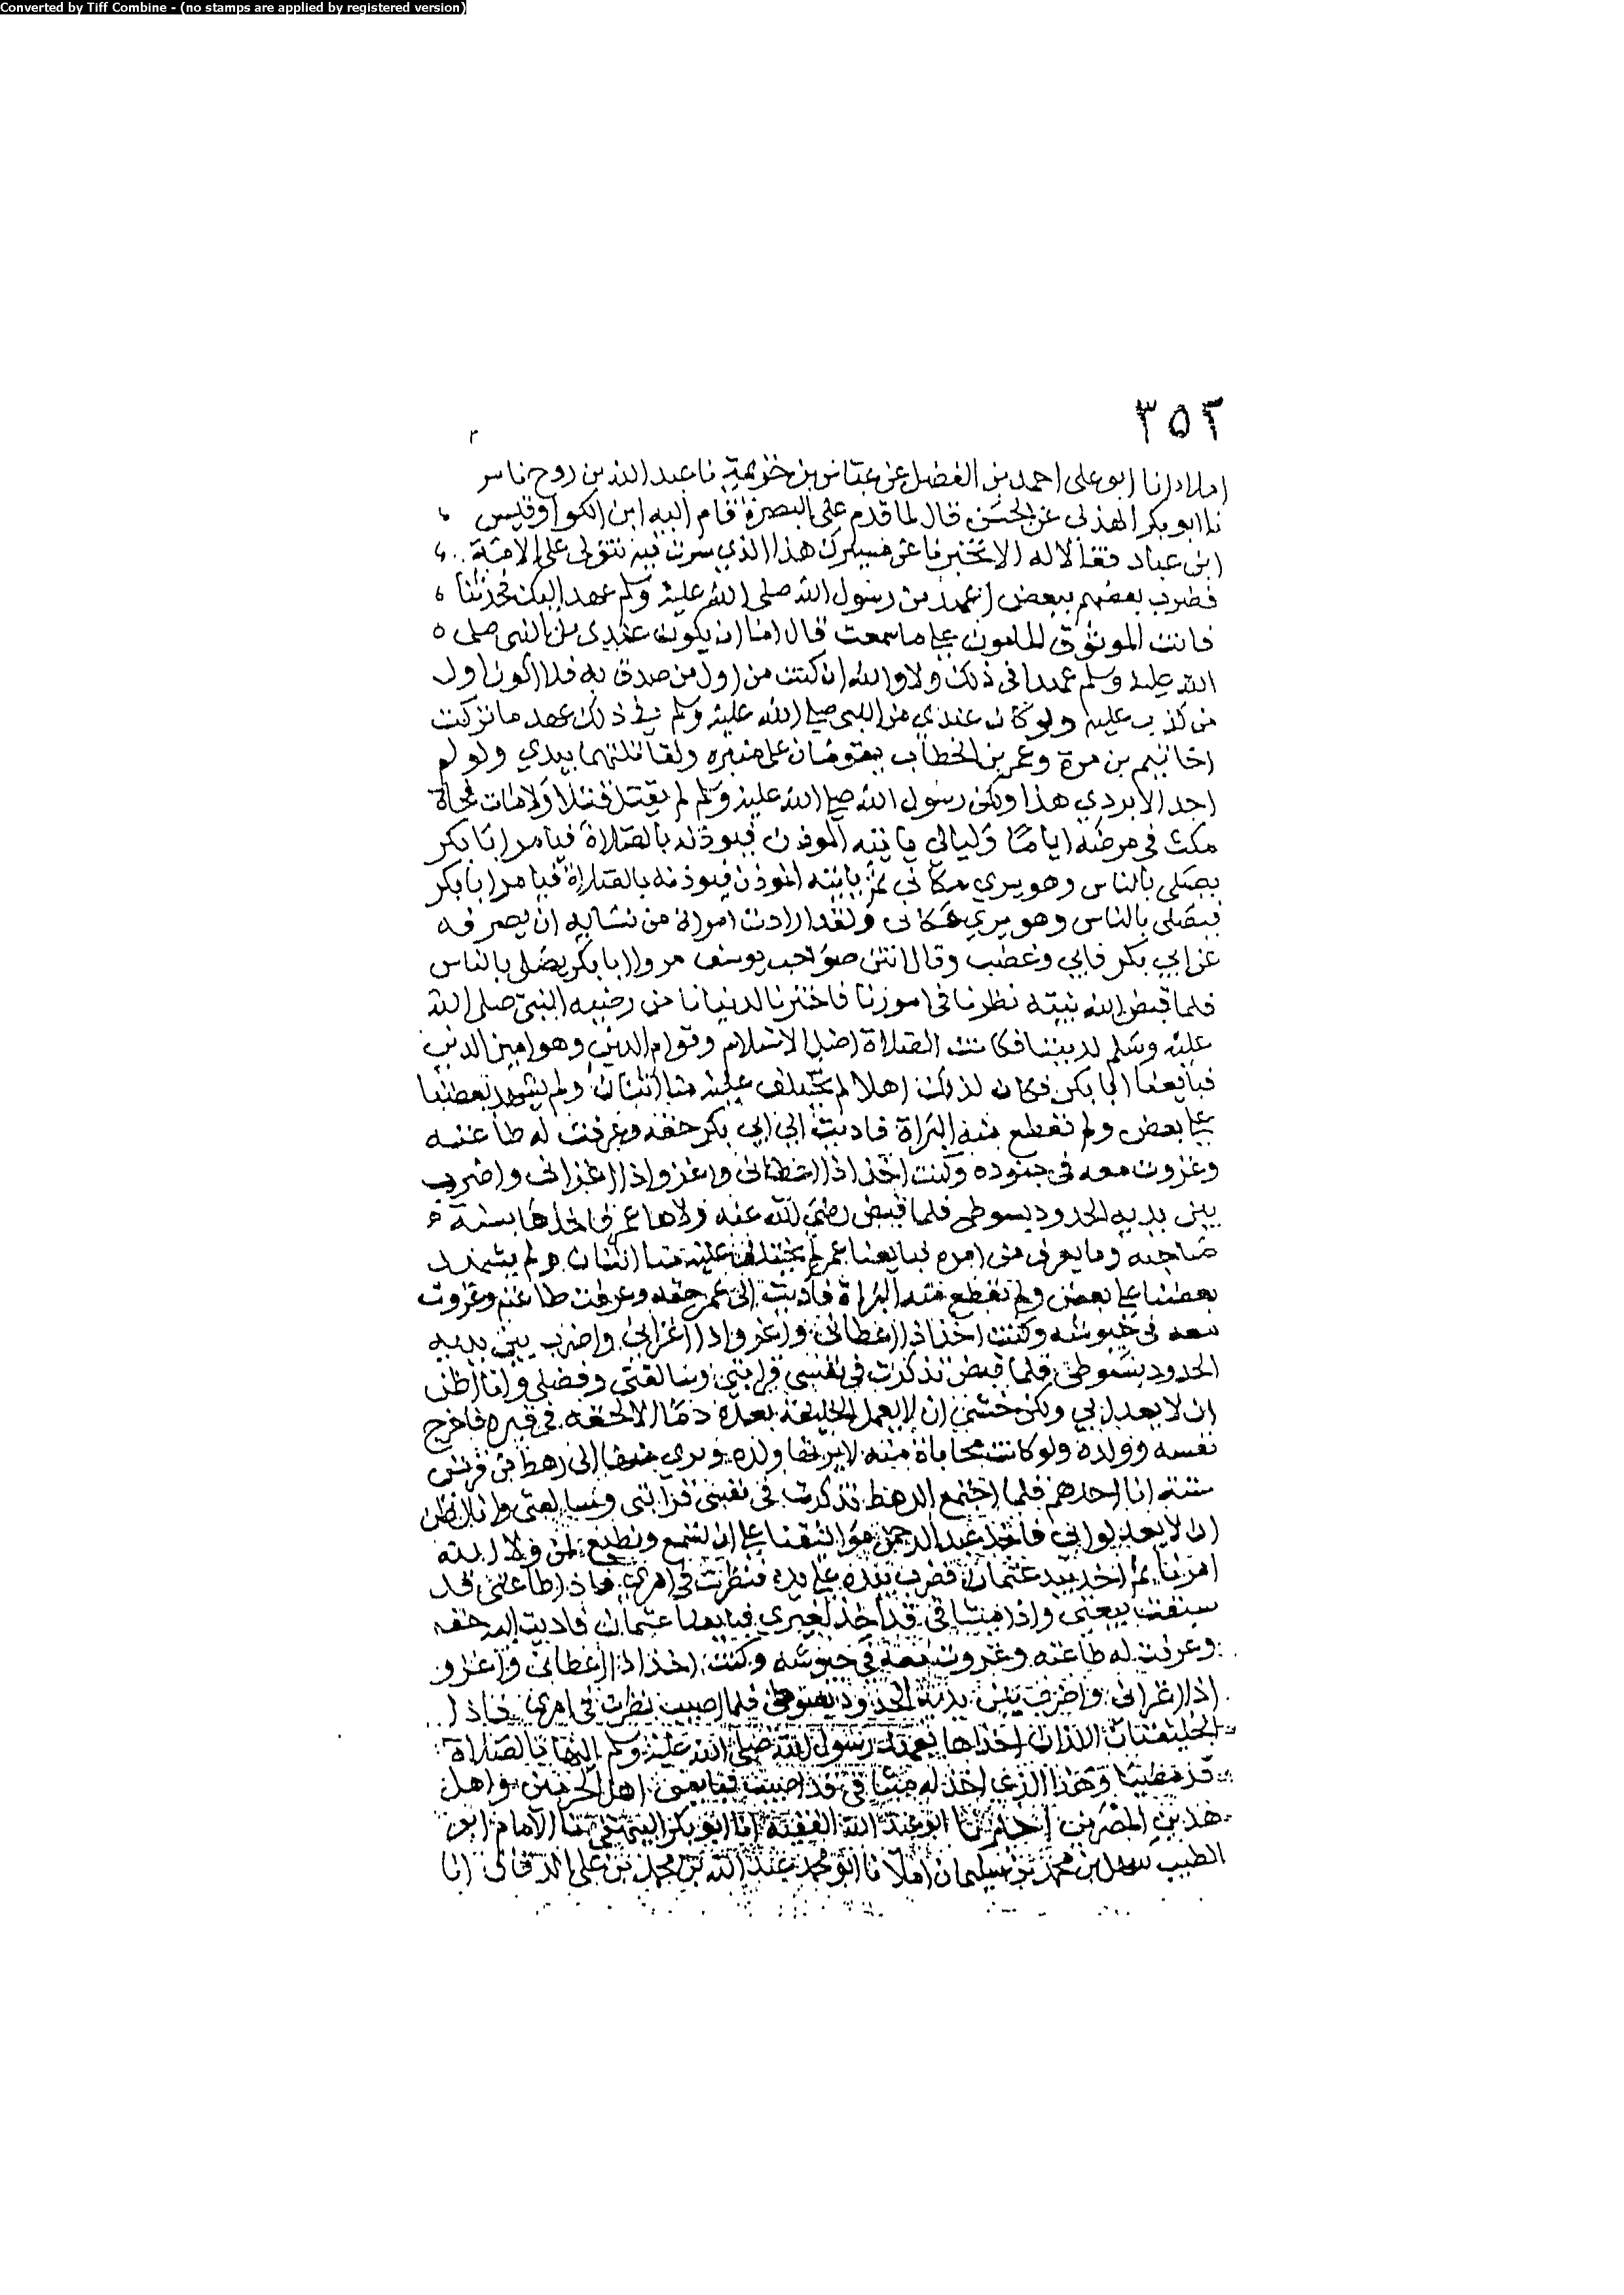 Converted by Tiff Combine - (no stamps are applied by registered version)
٣٥٢
املاء انا ابو علي احمد بن الفضل عن عباس بن خزيمة نا عبد الله بن روح نا
نا ابو بكر الهذلي عن الحسن قال لما قدم علي البصرة قام اليه ابن الكوا وقيس
ابن عباد فقالا له الا تخبرنا عن مسيرك هذا الذي سرت فيه تتولى على الامة
فضرب بعضهم ببعض اعهد من رسول الله صلى الله عليه وسلم عهد اليك فحدثنا
فانت الموثوق المامون على ما سمعت قال اما ان يكون عندي من النبي صلى
الله عليه وسلم عهدا في ذلك ولا والله ان كنت من اول من صدق به فلا اكون اول
من كذب عليه ولو كان عندي من النبي صلى الله عليه وسلم في ذلك عهد ما تركت
اخا تيم بن مرة وعمر بن الخطاب يقومان على منبره ولقاتلتهما بيدي ولو لم
اجد الا بردي هذا ولكن رسول الله صلى الله عليه وسلم لم يقتل قتلا ولا مات فجاة
مكث في مرضه اياما وليالي ياتيه الموذن فيوذنه بالصلاة فيامر ابا بكر
يصلى بالناس وهو يرى مكاني ثم ياتيه الموذن فيوذنه بالصلاة فيامر ابا بكر
فيصلى بالناس وهو يرى مكاني ولقد ارادت امراة من نسايه ان يصرفه
عن ابي بكر فابى وغضب وقال انتن صواحب يوسف مروا ابا بكر يصلى بالناس
فلما قبض الله نبيه نظرنا في امورنا فاخترنا لدنيانا من رضيه النبي صلى الله
عليه وسلم لديننا فكانت الصلاة اصل الاسلام وقوام الدين وهو امين الدين
فبايعنا ابا بكر فكان لذلك اهلا لم يختلف عليه منا اثنان ولم يشهد بعضنا
على بعض ولم نقطع منه البراة فاديت الى ابي بكر حقه وعرفت له طاعته
وغزوت معه في جنوده وكنت اخذ اذا اعطاني واغزو اذا اغزاني واضرب
بين يديه الحدود بسوطي فلما قبض رضي الله عنه ولاها عمر فاخذها بسنة
صاحبه وما يعرف من امره فبايعنا عمر لم يختلف عليه منا اثنان ولم يشهد
بعضنا على بعض ولم نقطع منه البراة فاديت الى عمر حقه وعرفت طاعته وغزوت
معه في جيوشه وكنت اخذ اذا اعطاني واغزو اذا اغزاني واضرب بين يديه
الحدود بسوطي فلما قبض تذكرت في نفسي قرابتي وسالفتي وفضلي وانا اظن
ان لا يعدل بي ولكن خشي ان لا يعمل الخليفة بعده ذنبا الا لحقه في قبره فاخرج
نفسه وولده ولو كانت محاباة منه لاثر بها ولده وبري منها الى رهط من قريش
ستة انا احدهم فلما اجتمع الرهط تذكرت في نفسي قرابتي وسالفتي وانا اظن
ان لا يعدلوا بي فاخذ عبد الرحمن مواثيقنا على ان نسمع ونطيع لمن ولاه الله
امرنا ثم اخذ بيد عثمان فضرب بيده على يده فنظرت في امري فاذا طاعتي قد
سبقت بيعتي واذا ميثاقي قد اخذ لغيري فبايعنا عثمان فاديت اليه حقه
وعرفت له طاعته وغزوت معه في جيوشه وكنت اخذ اذا اعطاني واغزو
اذا اغزاني واضرب بين يديه الحدود بسوطي فلما اصيب نظرت في امري فاذا
الخليفتان اللذان اخذاها بعهد رسول الله صلى الله عليه وسلم اليهما بالصلاة
قد مضيا وهذا الذي اخذ له ميثاقي قد اصيب فبايعني اهل الحرمين واهل
هذين المصرين اخبرنا ابو عبد الله الفقيه انا ابو بكر البيهقي نا الامام ابو
الطيب سهل بن محمد بن سليمان املا نا ابو محمد عبد الله بن محمد بن علي الدقاق انا